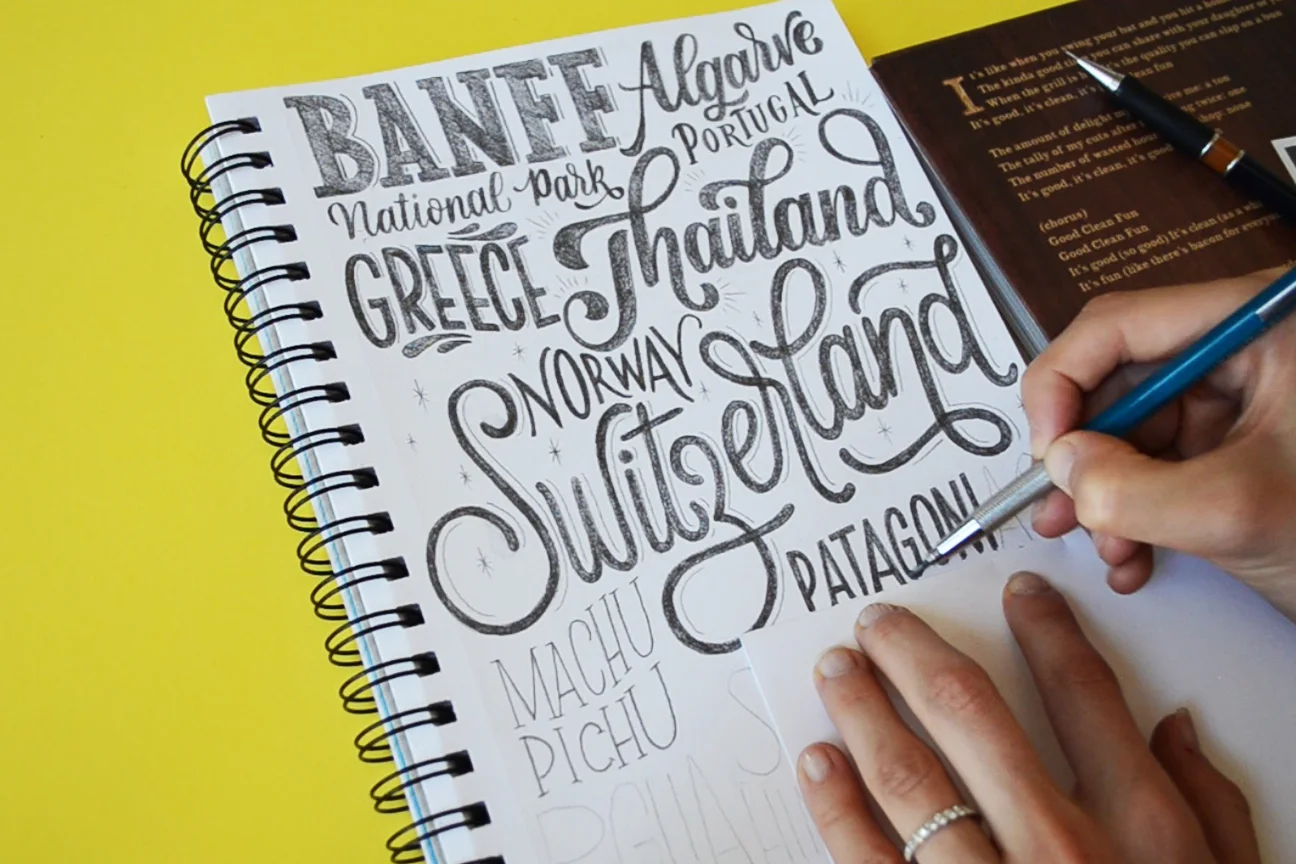 BANFF
National Park
Algarve
PORTUGAL
GREECE
Thailand
NORWAY
Switzerland
PATAGONIA
MACHU
PICHU
It's like when you swing your bat and you hit a
The kinda good you can share with your daughter
When the grill is the quality you can slap on a bun
It's good, it's clean, it's clean fun
The amount of delight give me: a ton
The tally of my cuts after twice: one
The number of wasted chop: none
It's good, it's clean, it's good
(chorus)
Good Clean Fun
Good Clean Fun
It's good (so good) It's clean (as a
It's fun (like there's bacon for